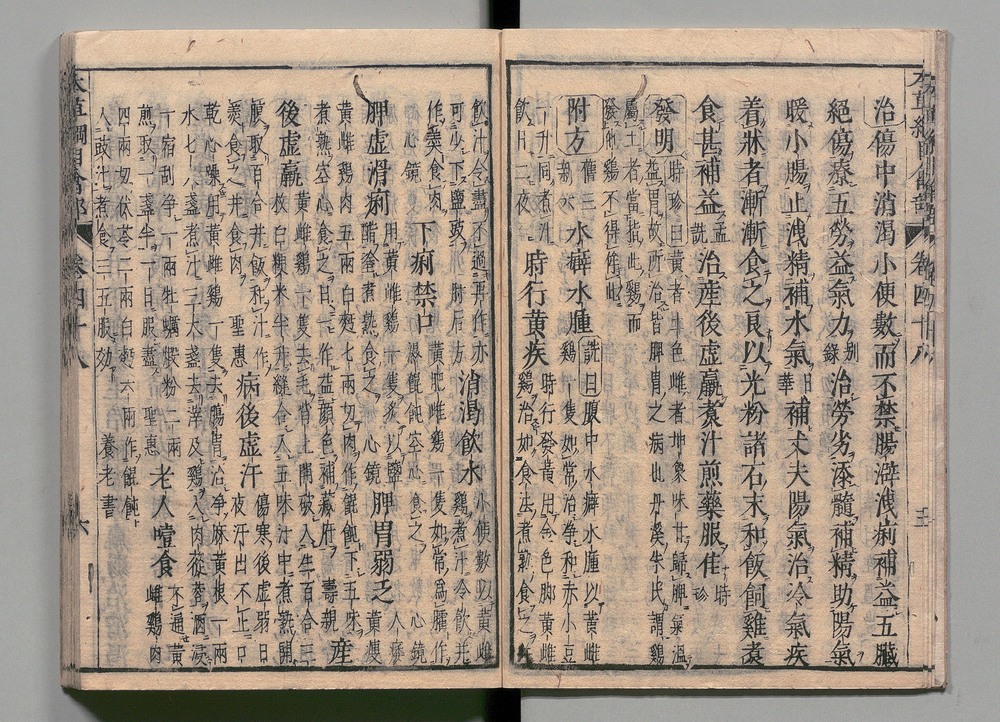 治傷中消渴小便數而不禁腸澼洩痢補益五臟
絕傷療五勞益氣力别錄治勞劣添髓補精助陽氣
暖小腸止洩精補水氣日華補丈夫陽氣治冷氣疾
着牀者漸漸食之良以光粉諸石末和飯飼雞煮
食甚補益孟詵治産後虚羸煮汁煎藥服佳時珍
發明時珍曰黃者土色雌者坤象味甘歸脾氣溫
益胃故所治皆脾胃之病也丹溪朱氏謂雞
屬土者當指此雞而
發他雞不得侔此
附方舊三新六水癖水腫詵曰腹中水癖水腫以黃雌
雞一隻如常治淨和赤小豆
一升同煮汁
飲日二夜一
時行黃疾時行發黃用金色脚黃雌
雞治如食法煮熟食之
飲汁令盡不過再作亦
可少下鹽豉肘后方消渴飲水小便數以黃雌
雞煮汁冷飲并
作羹食肉
心鏡下痢禁口黃肥雌雞一隻如常爲臛作
濕餛飩空心食之心鏡
脾虚滑痢用黃雌雞一隻炙以鹽
醋塗煮熟食之心鏡脾胃弱乏人瘦
黃瘦
黃雌雞肉五兩白麪七兩切肉作餛飩下五味
煮熟空心食之日一作益顔色補藏府壽親産
後虚羸黃雌雞一隻去毛背上開破入生百合三
枚白粳米半升縫合入五味汁中煮熟開
腹取百合并飯和汁作
羹食之并食肉聖惠病後虚汗傷寒後虚弱日
夜汗出不止口
乾心躁用黃雌雞一隻去腸胃治淨麻黃根一兩
水七大盞煮汁三大盞去滓及雞入肉蓯蓉酒浸
一宿刮淨一兩牡蠣煅粉二兩
煎取一盞半一日服盡聖惠老人噎食不通黃
雌雞肉
四兩切伏苓二兩白麪六兩作餛飩
入豉汁煮食三五服效養老書
卷四十八
六